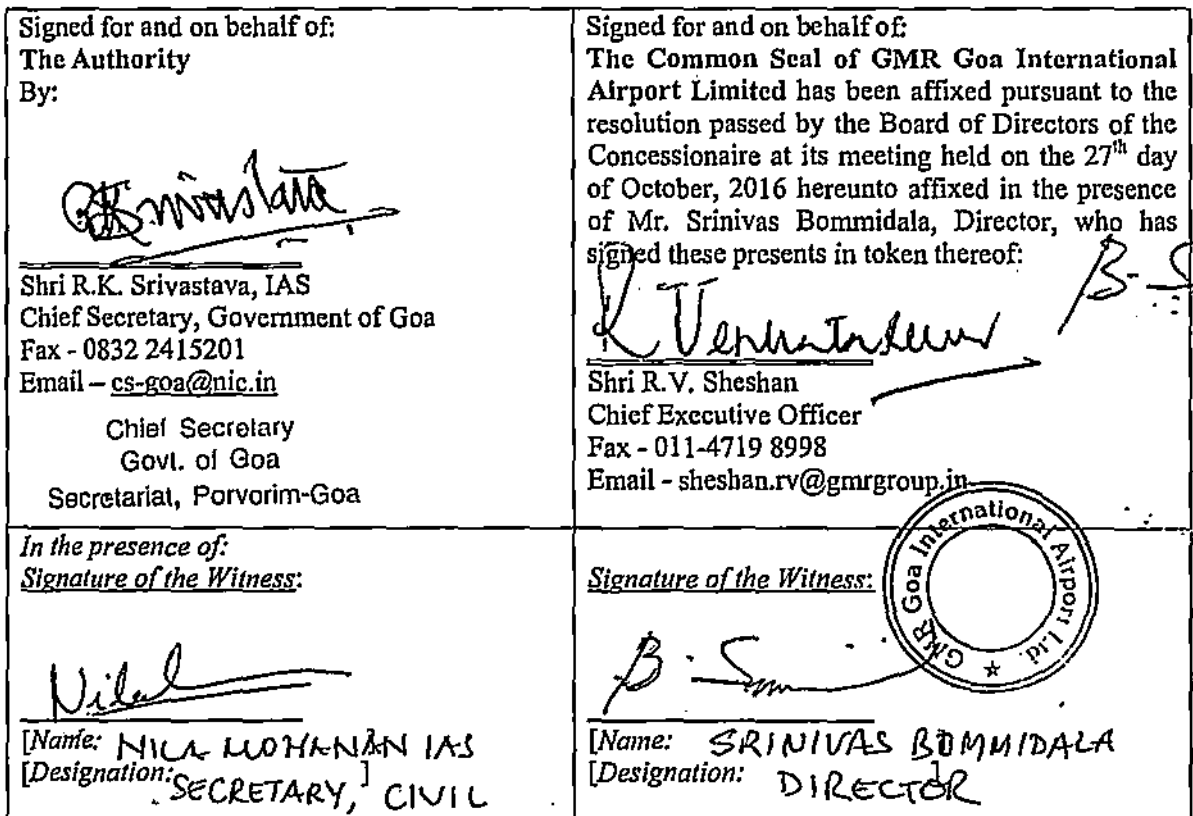 Signed for and on behalf of:
The Authority
By:
Shri R.K. Srivastava, IAS
Chief Secretary, Government of Goa
Fax - 0832 2415201
Email – cs-goa@nic.in
Chief Secretary
Govt. of Goa
Secretariat, Porvorim-Goa
Signed for and on behalf of:
The Common Seal of GMR Goa International
Airport Limited has been affixed pursuant to the
resolution passed by the Board of Directors of the
Concessionaire at its meeting held on the 27th day
of October, 2016 hereunto affixed in the presence
of Mr. Srinivas Bommidala, Director, who has
signed these presents in token thereof:
B-S
Shri R.V. Sheshan
Chief Executive Officer
Fax - 011-4719 8998
Email - sheshan.rv@gmrgroup.in
In the presence of:
Signature of the Witness:
[Name: NILA MOHANAN IAS
[Designation: ]
SECRETARY, CIVIL
Signature of the Witness:
GMR Goa International Airport Ltd. ★
[Name: SRINIVAS BOMMIDALA
[Designation: ]
DIRECTOR